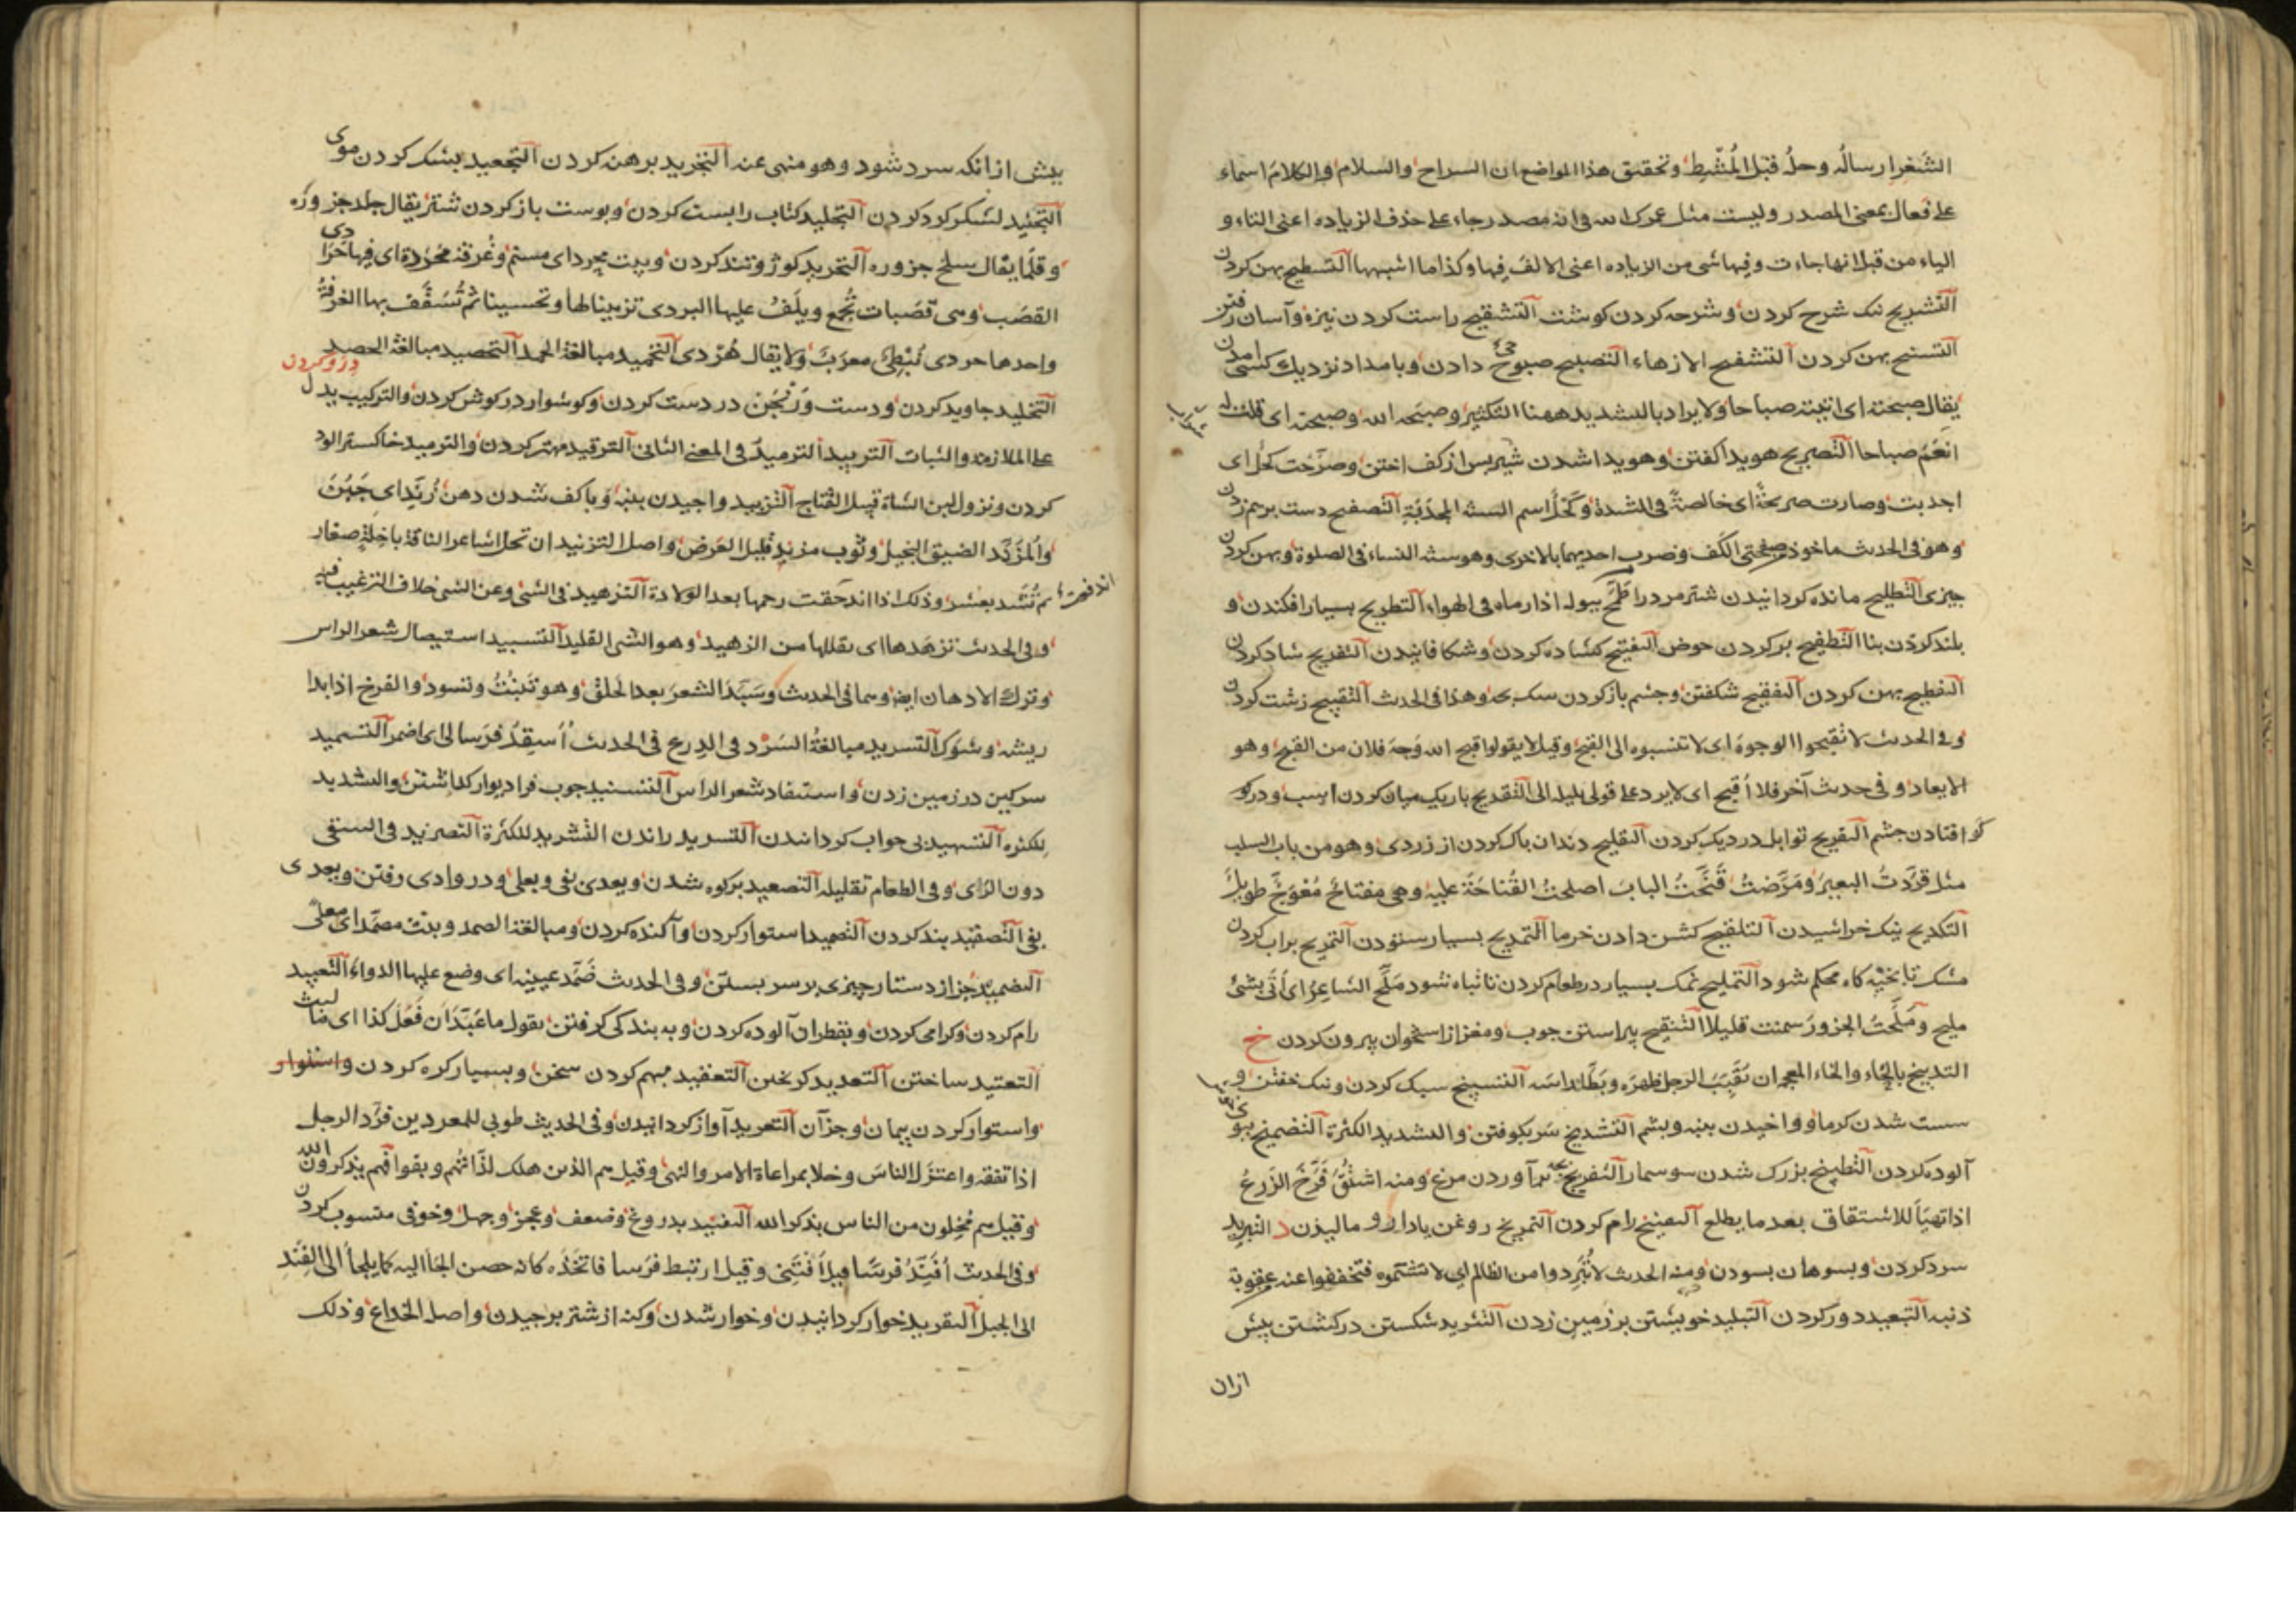 الشَّعَر ارسالُه وحلُّه قبل المُشط وتحقيق هذا المواضع ان السراح والسلام والكلام اسماء
على فعال بمعنى المصدر وليست مثل عمرك الله فى انه مصدر جاء على حذف الزياده اعنى التاء و
الياء من قبل انها جاءت وفيها شى من الزياده اعنى الالف فيها وكذا ما اشبهها التسطيح پهن كردن
التشريح نيك شرح كردن وشرحه كردن كوشت التشقيح راست كردن نيزه وآسان رفتن
پهن كردن التشقيح الازهاء التصبيح صبوحى دادن وبامداد نزديك كسى امدن
يقال صبحته اى اتيته صباحا ولا يراد بالتشديد ههنا التكثير وصبحه الله وصبحته اى قلت له
انعَم صباحا التصريح هويدا كفتن وهويدا شدن شير پس از كف اختن وصرّحت كحل اى
اجدبت وصارت صريحة اى خالصة فى الشدة وكَحْل اسم السنة المجدبة التصفيح دست برهم زدن
وهو فى الحدث ماخوذ من صفحتى الكف وضرب احديهما بالاخرى وهو سنة النساء فى الصلوة وپهن كردن
چيزى التطليح مانده كردانيدن شتر مرد را طَمَّح ببوله اذا رماه فى الهواء التطويح بسيار افكندن و
بلند كردن بنا التطفيح بر كردن حوض التفتيح كشاده كردن وشكافانيدن التفريح شاد كردن
التفطيح پهن كردن التفقيح شكفتن وچشم باز كردن سك بچه وهذا فى الحدث التقبيح زشت كردن
وفى الحدث لا تقبحوا الوجوه اى لا تنسبوه الى القبح وقيل لا يقولوا قبح الله وَجه فلان من القبح وهو
الابعاد وفى حدث آخر فلا اُقَبَّح اى لا يرد على قولى التقديح باريك ميان كردن اسب ودر كو
كو افتادن چشم التقزيح توابل در ديك كردن التقليح دندان پاك كردن از زردى وهو من باب السلب
مثل قرَّدتُ البعير ومَرَّضتُ قَنَّحْتُ الباب اصلحتُ القُناحَة عليه وهى مفتاح مُعْوَجّ طويل
التكديح نيك خراشيدن التلقيح كشن دادن خرما التمديح بسيار ستودن التمزيح پراب كردن
مشك تا بخيه كاه محكم شود التمليح نمك بسيار در طعام كردن تا تباه شود مَلَّح الشاعر اى اتى بشئ
مليح ومَلَّحَت الجزور سمنت قليلا التنقيح پيراستن چوب ومغز از استخوان بيرون كردن خ
التدبيخ بالحاء والخاء المعجمه ان يُقَبِّب الرجل ظهرَه ويطأطئ راسه التسبيخ سبك كردن ونيك خفتن و
سست شدن كرما وواخيدن پنبه وپشم التشديخ سر بكوفتن والتشديد للكثرة التضميخ ببوى
آلوده كردن التطبيخ بزرك شدن سوسمار التفريخ بچه برآوردن مرغ ومنه اشتُقّ فَرَّخَ الزَرعُ
اذا تهيّأ للانشقاق بعد ما يطلع التفنيخ رام كردن التمريخ روغن يا دارو ماليدن د التبريد
سرد كردن وبسوهان بسودن ومنه الحدث لا تُبَرِّدوا من الظالم اى لا تشتموه فتخففوا عنه عقوبة
ذنبه التبعيد دور كردن التبليد خويشتن بر زمين زدن التثريد شكستن در كشتن پيش
ازان
پيش از انكه سرد شود وهو منهى عنه التجريد برهنه كردن التجعيد بشك كردن موى
التجنيد لشكر كرد كردن التجليد كتاب را پست كردن وپوست باز كردن شتر يقال جلد جزوره
وقلّما يقال سلخ جزوره التحريد كوژ وتند كردن وبيت محرد اى مسنم وغُرفة محرّدة اى فيها حرادى
القصب وهى قصبات تُجمع ويلَفّ عليها البردى تزيينا لها وتحسينا ثم تُسَقَّف بها الغرفة
واحدها حردى نَبَطِىّ معرّب ولا يقال هُردى التحميد مبالغة الحمد التحصيد مبالغة الحصد درو كردن
التخليد جاويد كردن ودست وَرَنْجَن در دست كردن وكوشوار در كوش كردن والتركيب يدل
على الملازمة والثبات التربيد الترميد فى المعنى الثانى الترقيد مهتر كردن والترميد خاكستر الود
كردن ونزول لبن الشاة قبيل النتاج التزبيد واجيدن پنبه وبا كف شدن دهن
والمُزَنَّد الضيق البخيل وثوب مزند قليل العَرض واصل التزنيد ان تخل اشاعر الناقة باخِلّة صغار
ثم تُشَد بشعر وذلك اذا اندحقت رحمها بعد الولادة التزهيد فى الشئ وعن الشئ خلاف الترغيب فيه
وفى الحدث تزهدها اى تقللها من الزهيد وهو الشئ القليل التسبيد استيصال شعر الراس
وترك الادهان ايضا وهما فى الحدث وسَبَّدَ الشعر بعد الحلق وهو تَنبُتُ وتسود والفرخ اذا بدا
ريشه وشوّك التسريد مبالغة السَرْد فى الدِرع فى الحدث اُسَقِّدُ فرسا لى اى اضمر التسميد
سركين در زمين زدن واستيفاد شعر الراس التسنيد چوب فرا ديوار كذاشتن والتشديد
للكثرة التسهيد بى خواب كردانيدن التشريد راندن التشريد للكثرة التصريد فى السقى
دون الرّى وفى الطعام تقليله التصعيد بركوه شدن ويعدى بفى وبعلى ودر وادى رفتن ويعدى
بفى التصفيد بند كردن التصميد استوار كردن وآكنده كردن ومبالغة الصمد وبيت مصمَّد اى معلى
التضميد جز از دستار چيزى بر سر بستن وفى الحدث ضَمَّد عينيه اى وضع عليها الدواء التعبيد
رام كردن وكرامى كردن وبقطران آلوده كردن وبه بندكى كرفتن يقول ما عبّد ان فَعَل كذا اى ما لبث
التعتيد ساختن التعريد كريختن التعقيد مبهم كردن سخن وبسيار كره كردن واستوار
واستوار كردن پيمان وجز آن التغريد آواز كردانيدن وفى الحديث طوبى للمفردين فرّد الرجل
اذا تفقه واعتزل الناس وخلا بمراعاة الامر والنهى وقيل هم الذين هلك لِدَّاتُهم وبقوا فهم يذكرون الله
وقيل هم مُخِلون من الناس بذكر الله التفنيد بدروغ وضعف وعجز وجهل وخوفى منسوب كردن
وفى الحدث اُفَنِّدُ فرسًا قيل اَقتَنى وقيل ارتبط فرسا فاتخذه كانه حصن الجأ اليه كما يلجأ الى الفِنْد
الى الجبل التقريد خوار كردانيدن وخوار شدن وكنه از شتر برچيدن واصل الخداع وذلك